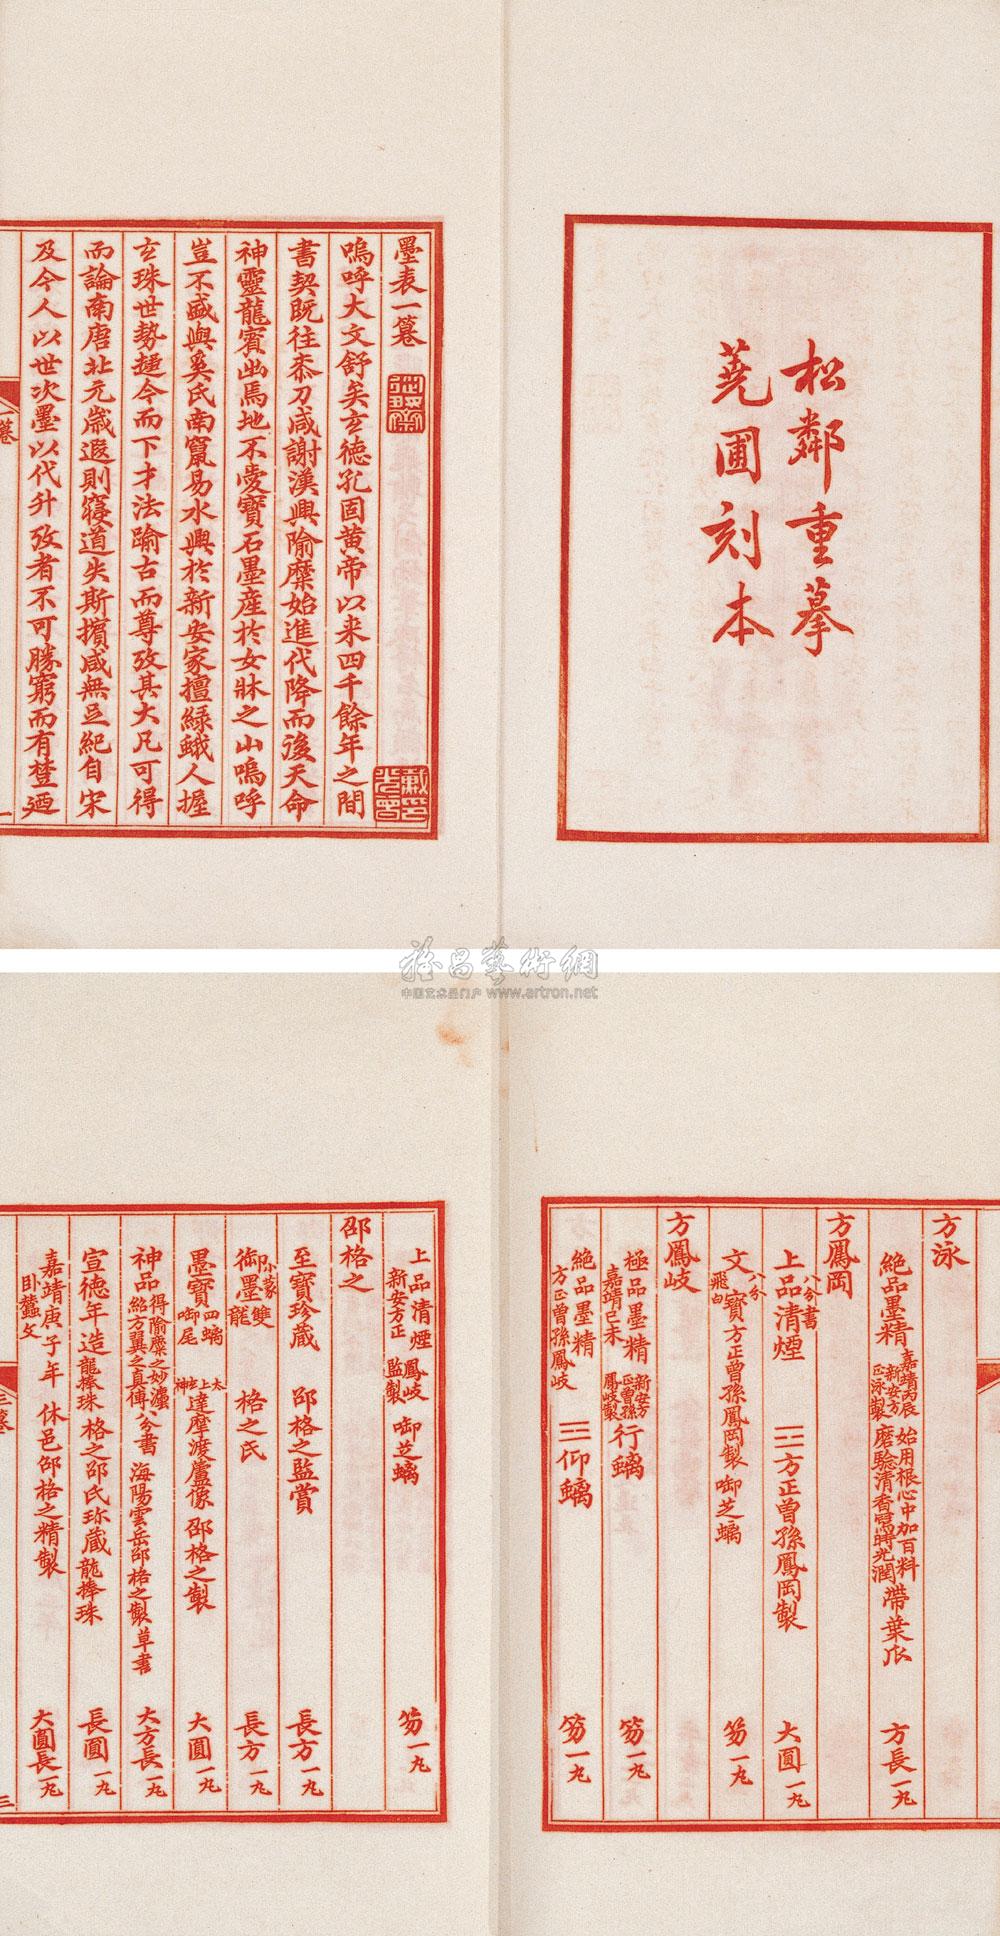 松鄰重摹
蕘圃刻本
墨表一篹
嗚呼大文舒矣玄德孔固黃帝以来四千餘年之間
書契既往桼刀咸謝漢興隃糜始進代降而後天命
神靈龍賓出焉地不愛寶石墨産於女牀之山嗚呼
豈不盛與奚氏南竄易水興於新安家擅綠蛾人握
玄珠世勢趨今而下才法踰古而尊攷其大凡可得
而論南唐北元歲遐則寖道失斯擯咸無足紀自宋
及今人以世次墨以代升攷者不可勝窮而有
一篹
一
雅昌藝術網
中国艺术品门户 www.artron.net
方泳
絶品墨精 嘉靖丙辰新安方正泳製 始用根心中加百料磨驗清香寫時光潤 帶葉瓜 方長一丸
方鳳岡
上品清煙 八分書 三二方正曾孫鳳岡製 大圓一丸
文寶 八分飛白 方正曾孫鳳岡製 啣芝螭 笏一丸
方鳳岐
極品墨精 嘉靖己未 新安方正曾孫鳳岐製 行螭 笏一丸
絶品墨精 方正曾孫鳳岐 三仰螭 笏一丸
上品清煙 新安方正 鳳岐監製 啣芝螭 笏一丸
邵格之
至寶珍蔵 邵格之監賞 長方一丸
御墨 小篆雙龍 格之氏 長方一丸
墨寶 四螭啣尾 太上玄神 達摩渡蘆像 邵格之製 大圓一丸
神品 得隃糜之妙灋紹方翼之真傳 八分書 海陽雲岳邵格之製草書 大方長一丸
宣德年造 龍捧珠 格之邵氏珎蔵 龍捧珠 長圓一丸
嘉靖庚子年 卧蠶文 休邑邵格之精製 大圓長一丸
三篹
三